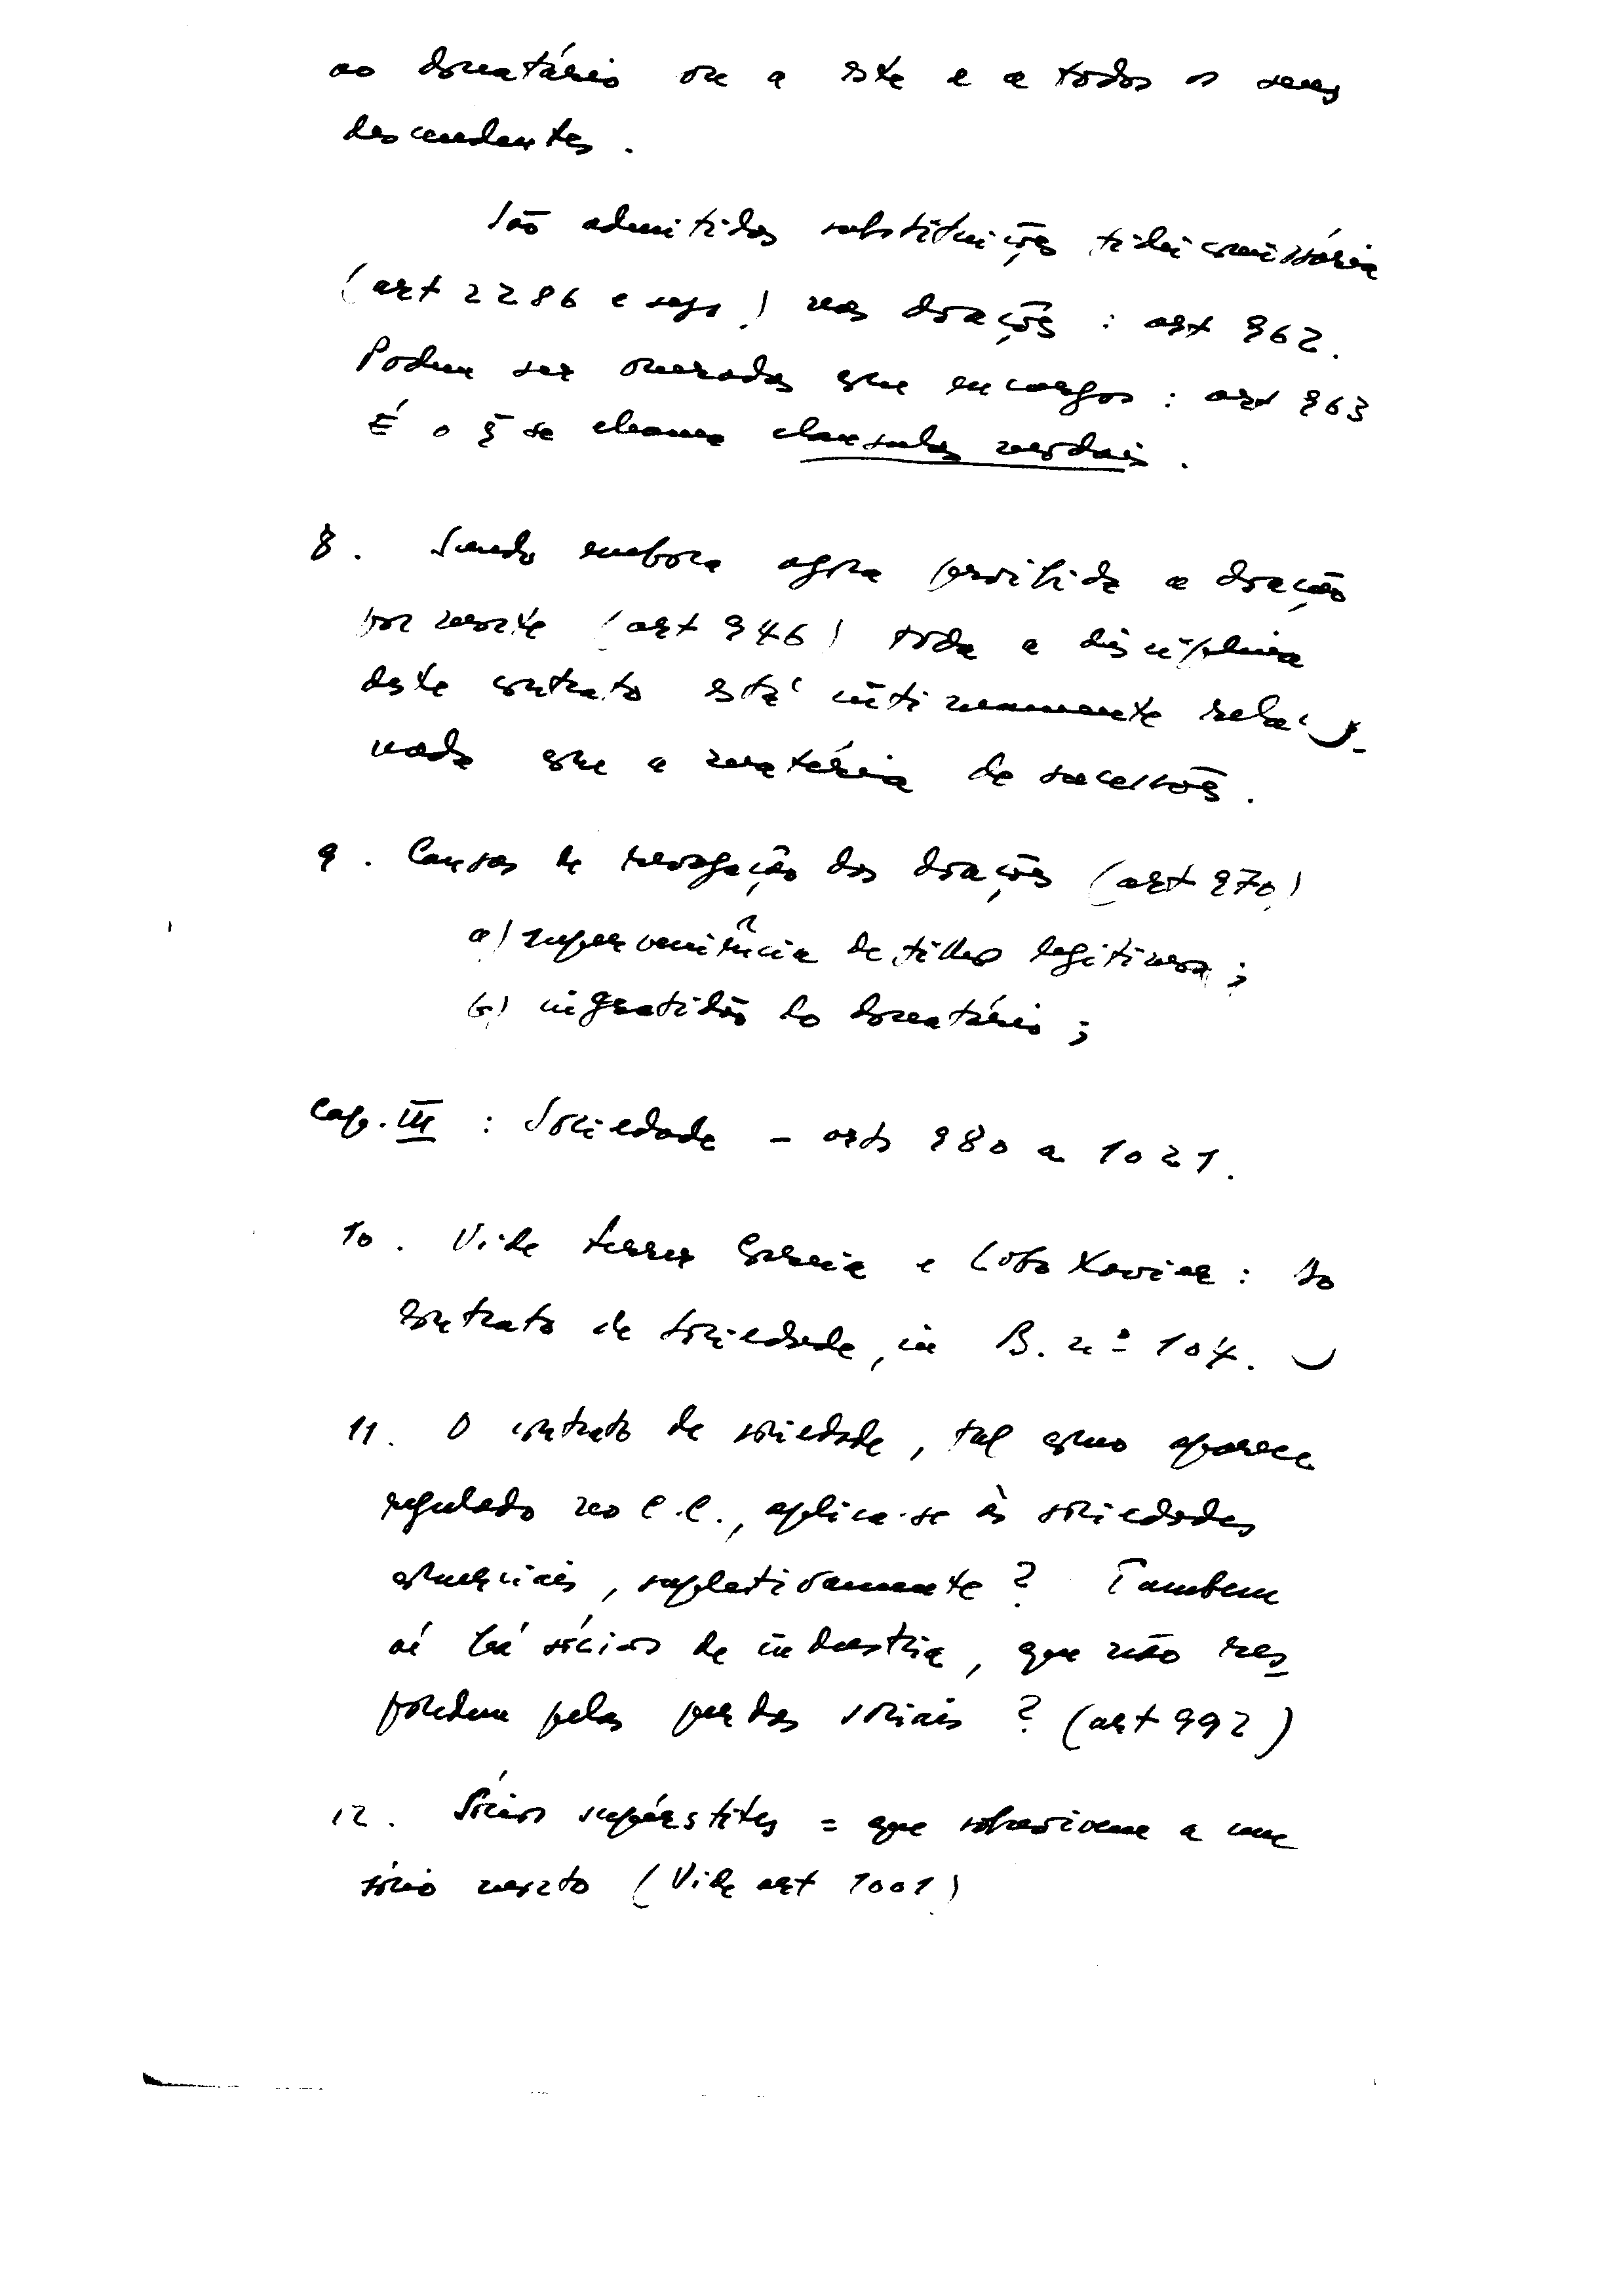 ao donatário ou a este e a todos os seus
descendentes.
São admitidas substituições fideicomissária
(art 2286 e segs.) nas doações : art 962.
Podem ser oneradas com encargos : art 963
É o q̄ se chama clausulas modais.
8. Sendo embora agora proibida a doação
por morte (art 946) toda a disciplina
deste contrato está intimamente relacio-
nada com a matéria de sucessões.
9. Causas de revogação das doações (art 970)
a) superveniência de filhos legitimos;
b) ingratidão do donatário;
Cap. III : Sociedade – arts 980 a 1021.
10. Vide Ferrer Correia e Lobo Xavier : Do
contrato de sociedade, in B. nº 104.
11. O contrato de sociedade, tal como aparece
regulado no C.C., aplica-se às sociedades
comerciais, supletivamente ? Tambem
aí há sócios de industria, que não res
pondem pelas perdas sociais ? (art 992)
12. Sócios supérstites = que sobrevivem a um
sócio morto (Vide art 1001)